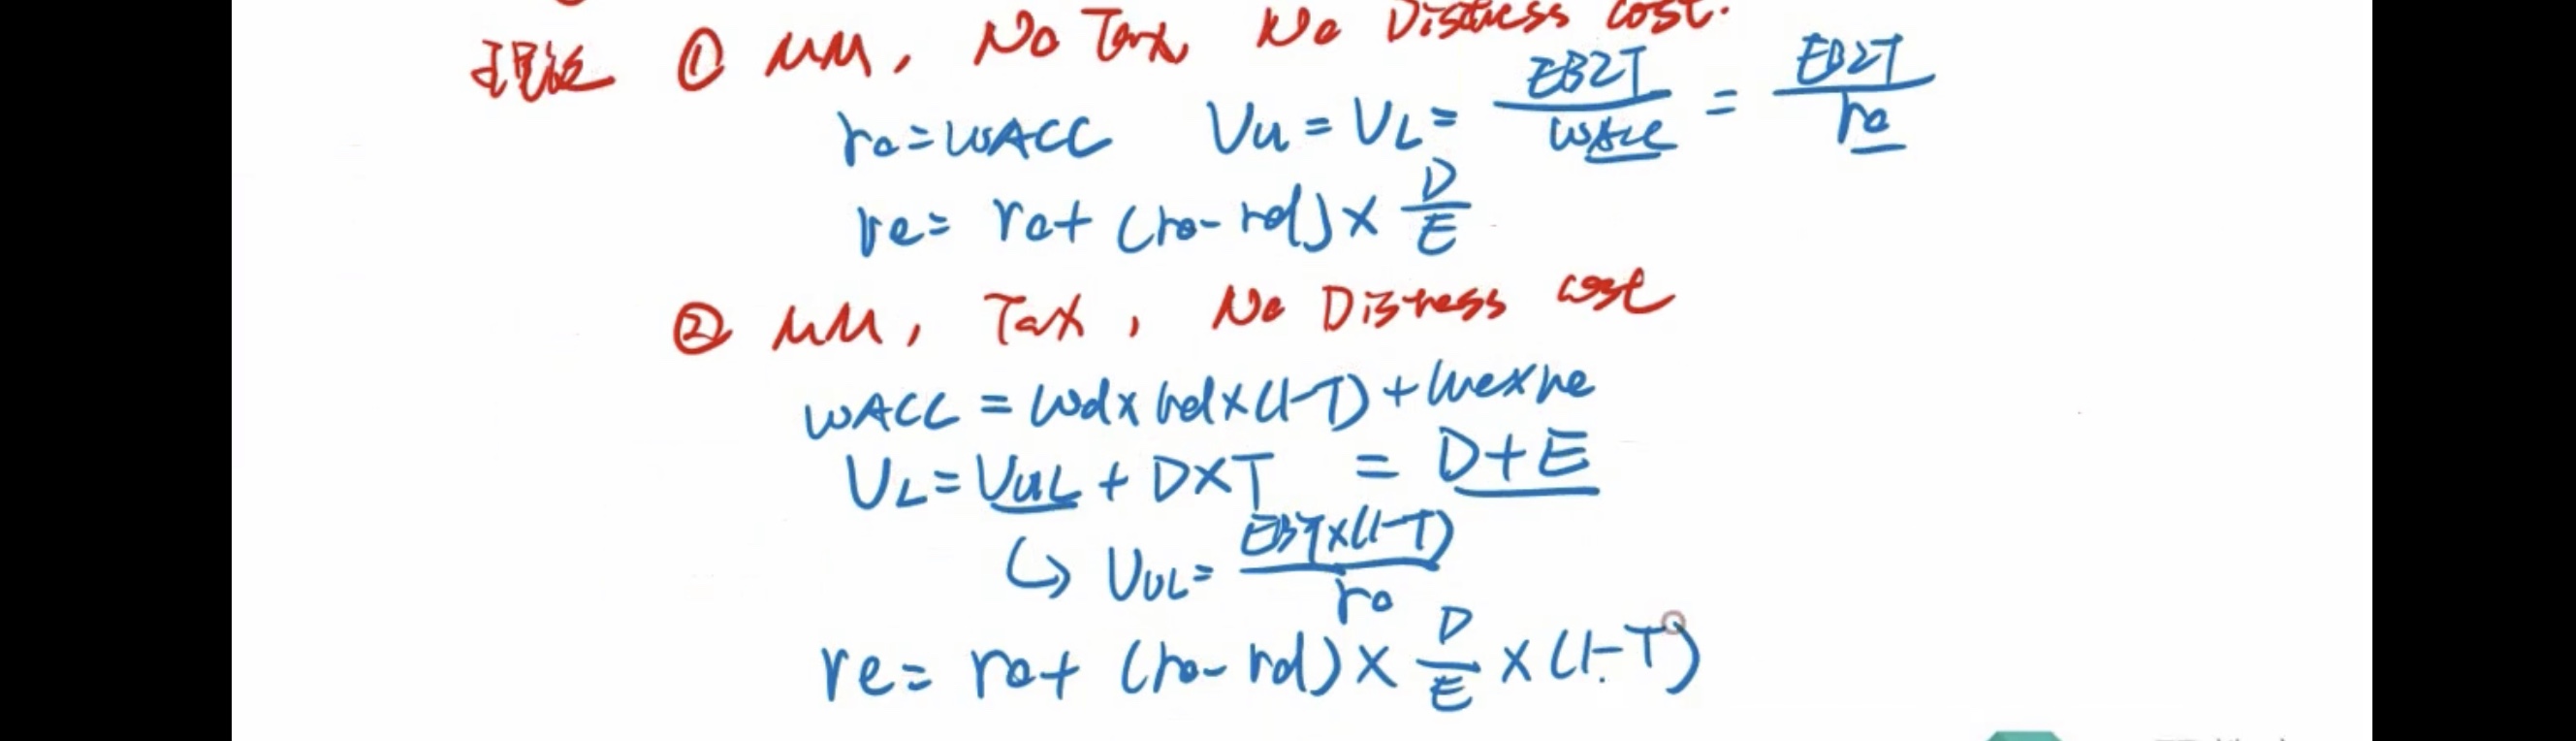 理论 ① MM, No Tax, No Distress cost.
r0 = WACC VU = VL = EBIT/WACC = EBIT/r0
re = r0 + (r0 - rd) × D/E
② MM, Tax, No Distress cost
WACC = wd × rd × (1-T) + we × re
VL = VUL + D×T = D+E
↳ VUL = EBIT×(1-T)/r0
re = r0 + (r0 - rd) × D/E × (1-T)